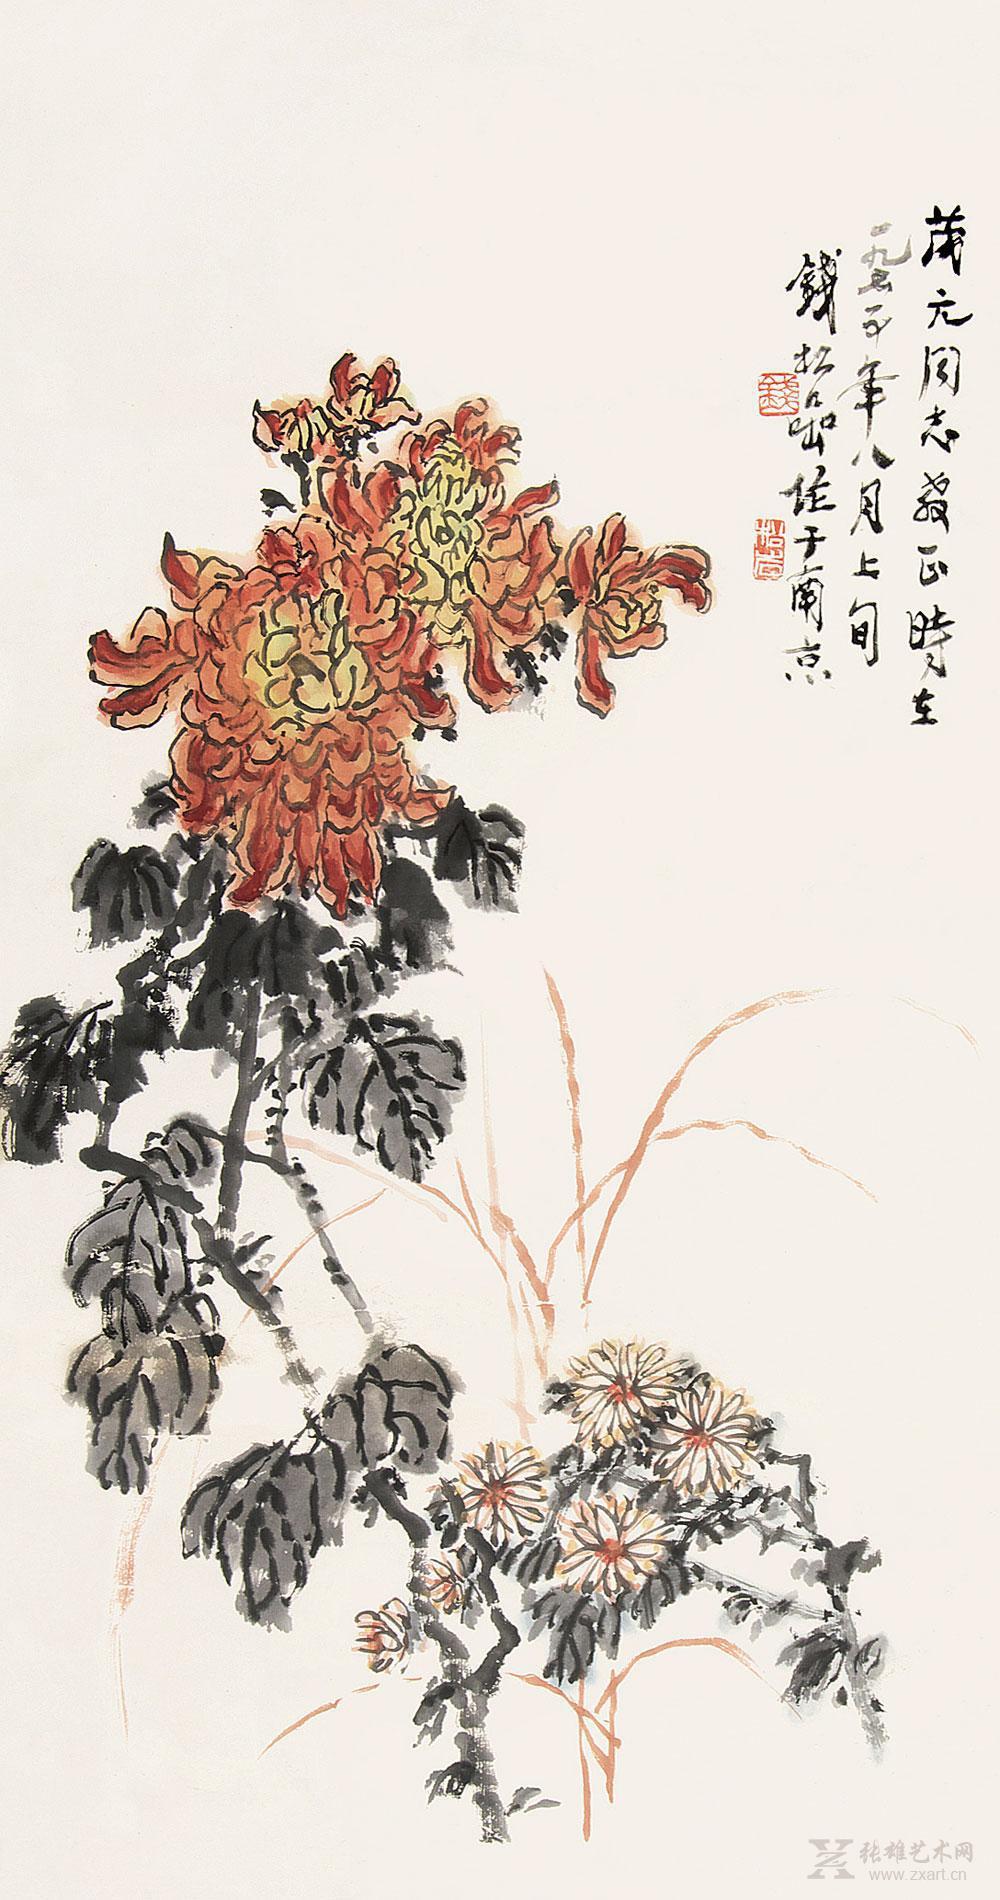 茂元同志教正時在
一九七五年八月上旬
錢松喦作于南京
錢
松喦
张雄艺术网
www.zxart.cn